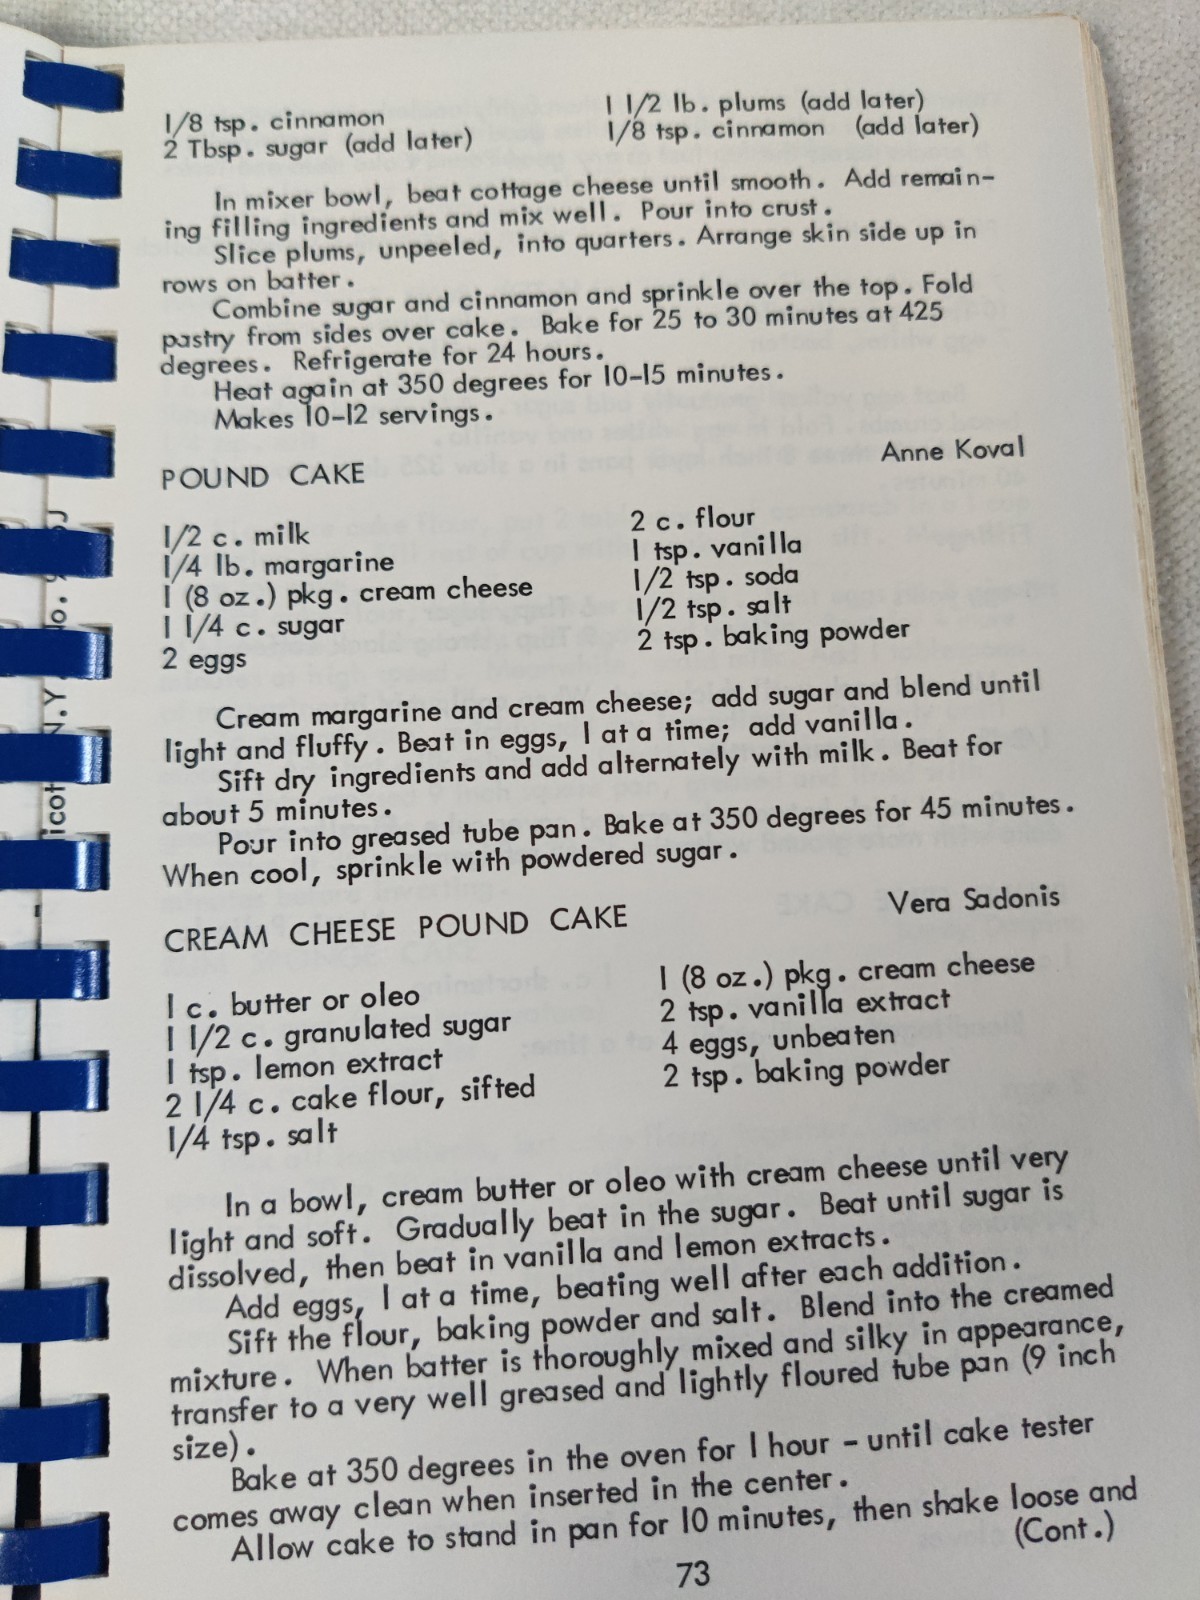 1/8 tsp. cinnamon
2 Tbsp. sugar (add later)
1 1/2 lb. plums (add later)
1/8 tsp. cinnamon (add later)
In mixer bowl, beat cottage cheese until smooth. Add remain-
ing filling ingredients and mix well. Pour into crust.
Slice plums, unpeeled, into quarters. Arrange skin side up in
rows on batter.
Combine sugar and cinnamon and sprinkle over the top. Fold
pastry from sides over cake. Bake for 25 to 30 minutes at 425
degrees. Refrigerate for 24 hours.
Heat again at 350 degrees for 10-15 minutes.
Makes 10-12 servings.
Anne Koval
POUND CAKE
1/2 c. milk
1/4 lb. margarine
1 (8 oz.) pkg. cream cheese
1 1/4 c. sugar
2 eggs
2 c. flour
1 tsp. vanilla
1/2 tsp. soda
1/2 tsp. salt
2 tsp. baking powder
Cream margarine and cream cheese; add sugar and blend until
light and fluffy. Beat in eggs, 1 at a time; add vanilla.
Sift dry ingredients and add alternately with milk. Beat for
about 5 minutes.
Pour into greased tube pan. Bake at 350 degrees for 45 minutes.
When cool, sprinkle with powdered sugar.
Vera Sadonis
CREAM CHEESE POUND CAKE
1 c. butter or oleo
1 1/2 c. granulated sugar
1 tsp. lemon extract
2 1/4 c. cake flour, sifted
1/4 tsp. salt
1 (8 oz.) pkg. cream cheese
2 tsp. vanilla extract
4 eggs, unbeaten
2 tsp. baking powder
In a bowl, cream butter or oleo with cream cheese until very
light and soft. Gradually beat in the sugar. Beat until sugar is
dissolved, then beat in vanilla and lemon extracts.
Add eggs, 1 at a time, beating well after each addition.
Sift the flour, baking powder and salt. Blend into the creamed
mixture. When batter is thoroughly mixed and silky in appearance,
transfer to a very well greased and lightly floured tube pan (9 inch
size).
Bake at 350 degrees in the oven for 1 hour - until cake tester
comes away clean when inserted in the center.
Allow cake to stand in pan for 10 minutes, then shake loose and
(Cont.)
73